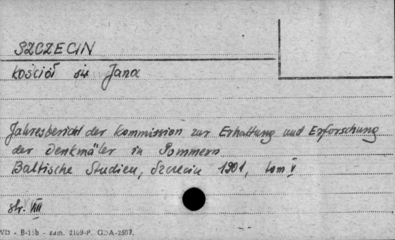 SZCZECIN
Kościół św Jana
Jahresbericht der Kommission zur Erhaltung und Erforschung
der Denkmäler in Pommern
Baltische Studien, Szczecin 1901, tom V
str. VIII